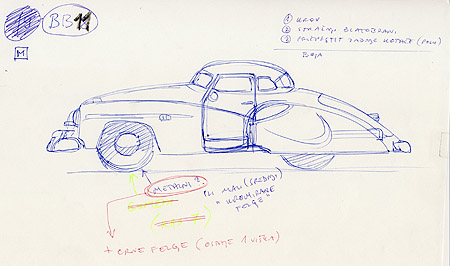 BB11
M
① KROV
② STRAŽNJI BLATOBRANI
③ PREMJESTIT ZADNJE KOTAČE (POLO)
BOJA
METALNI 1.
ILI MALI (SREDNJI)
"KROMIRANE
FELGE"
+ CRNE FELGE (OSTAJE 1 VIŠKA)